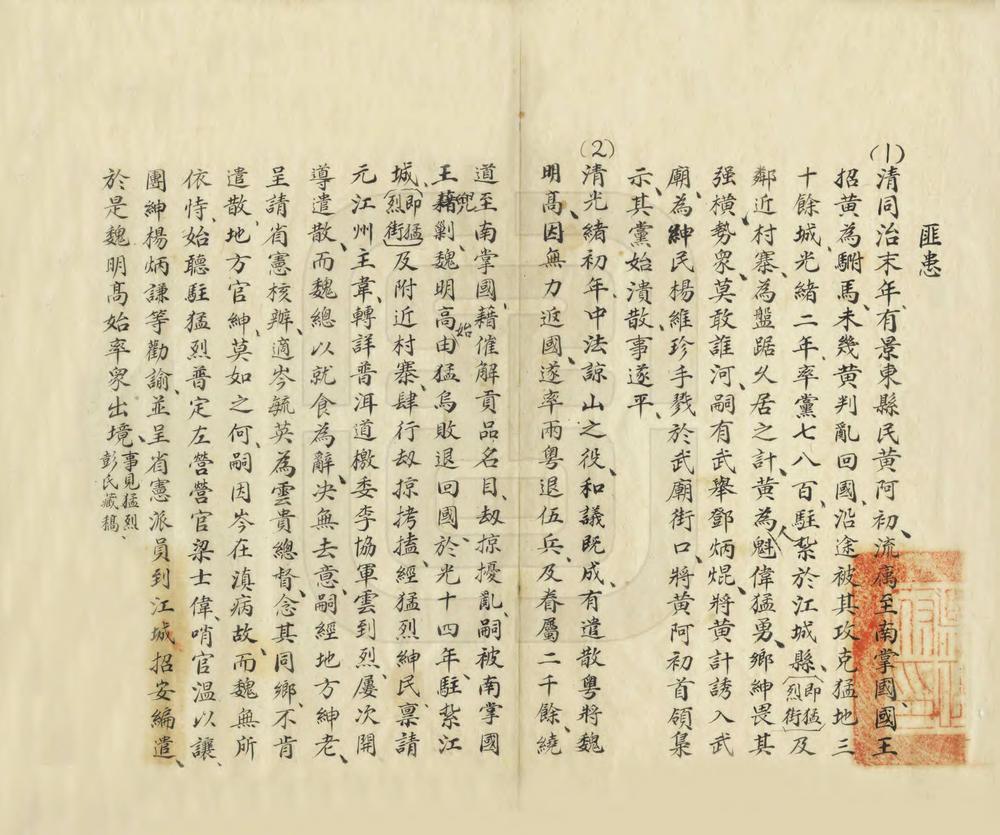 匪患
(1)清同治末年、有景東縣民黃阿初、流寓至南掌國、國王
招黃為駙馬、未幾黃判亂回國、沿途被其攻克猛地三
十餘城光緒二年率黨七八百人、駐紮於江城縣、(即猛烈街)及
鄰近村寨、為盤踞久居之計、黃為人魁偉猛勇、鄉紳畏其
强橫勢衆、莫敢誰河、嗣有武舉鄧炳焜、將黃計誘入武
廟、為紳民楊維珍手戮於武廟街口、將黃阿初首領梟
示、其黨始潰散、事遂平、
(2)清光緒初年、中法諒山之役、和議既成、有遣散粵將、魏
明高、因無力返國、遂率兩粵退伍兵、及眷屬二千餘、繞
道至南掌國、藉催解貢品名目、刼掠擾亂、嗣被南掌國
王兜剿、魏明高始由猛烏敗退回國、於光十四年、駐紮江
城、(即猛烈街)及附近村寨、肆行刼掠拷搕、經猛烈紳民、禀請
元江州主韋、轉詳普洱道檄委李協軍雲到烈、屢次開
導遣散、而魏總以就食為辭、决無去意、嗣經地方紳老、
呈請省憲核辦、適岑毓英為雲貴總督、念其同鄉、不肯
遣散、地方官紳、莫如之何、嗣因岑在滇病故、而魏無所
依恃、始聽駐猛烈普定左營營官梁士偉、哨官溫以讓、
團紳楊炳謙等勸諭、並呈省憲派員到江城招安編遣、
於是魏明高始率衆出境、事見猛烈彭氏藏稿、